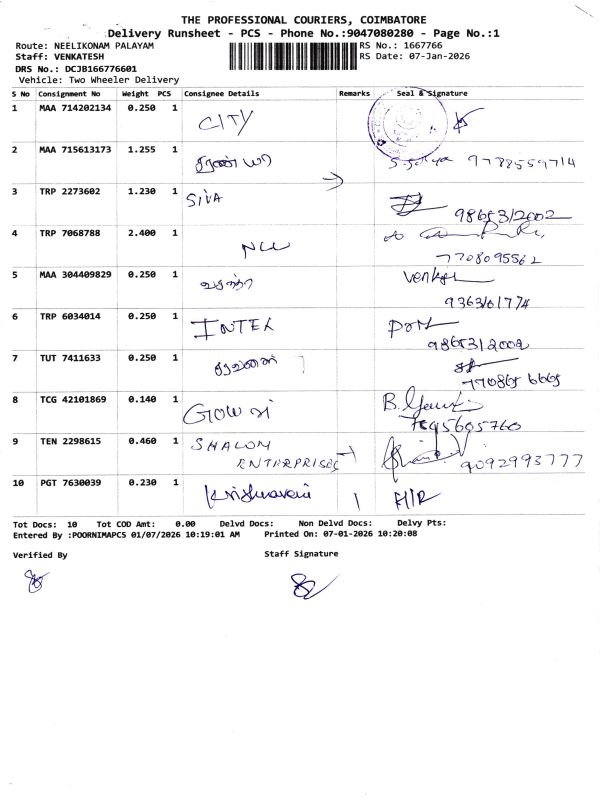 THE PROFESSIONAL COURIERS, COIMBATORE
Delivery Runsheet - PCS - Phone No.:9047080280 - Page No.:1
Route: NEELIKONAM PALAYAM RS No.: 1667766
Staff: VENKATESH RS Date: 07-Jan-2026
DRS No.: DCJB166776601
Vehicle: Two Wheeler Delivery
S No Consignment No Weight PCS Consignee Details Remarks Seal & Signature
1 MAA 714202134 0.250 1 CITY
2 MAA 715613173 1.255 1 சரண்யா 9788559714
3 TRP 2273602 1.230 1 SIVA
9865312002
4 TRP 7068788 2.400 1
7708095562
5 MAA 304409829 0.250 1 வசந்த்
9363161774
6 TRP 6034014 0.250 1 INTEK
9865312002
7 TUT 7411633 0.250 1 சரவணன்
770865 6665
8 TCG 42101869 0.140 1 Gowri
9 TEN 2298615 0.460 1 SHALOM
ENTERPRISES 9092993777
10 PGT 7630039 0.230 1 Krishnaveni
Tot Docs: 10 Tot COD Amt: 0.00 Delvd Docs: Non Delvd Docs: Delvy Pts:
Entered By :POORNIMAPCS 01/07/2026 10:19:01 AM Printed On: 07-01-2026 10:20:08
Verified By Staff Signature